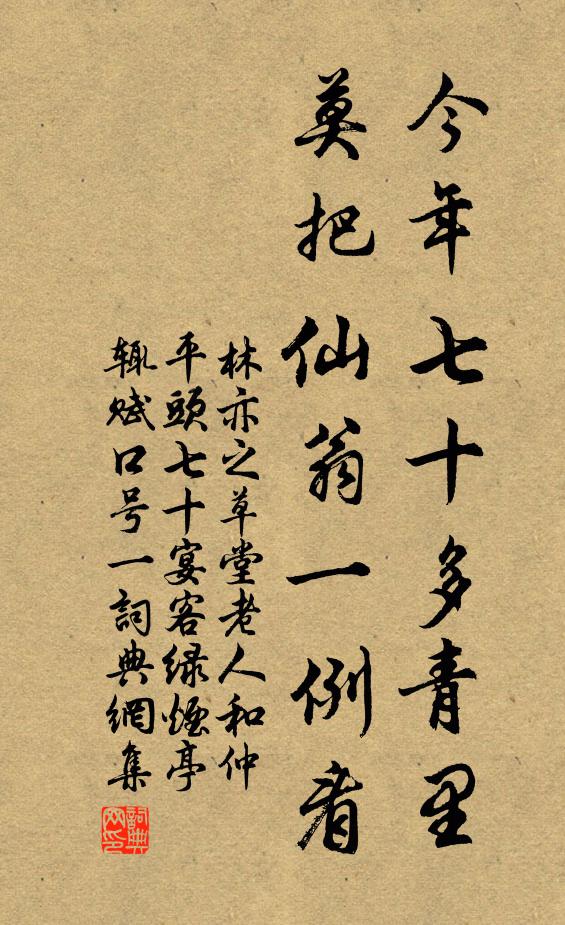 今年七十多青里
莫把仙翁一例看
林亦之草堂老人和仲
平頭七十宴客绿煙亭
輒赋口号一詞典網集
詞典网印